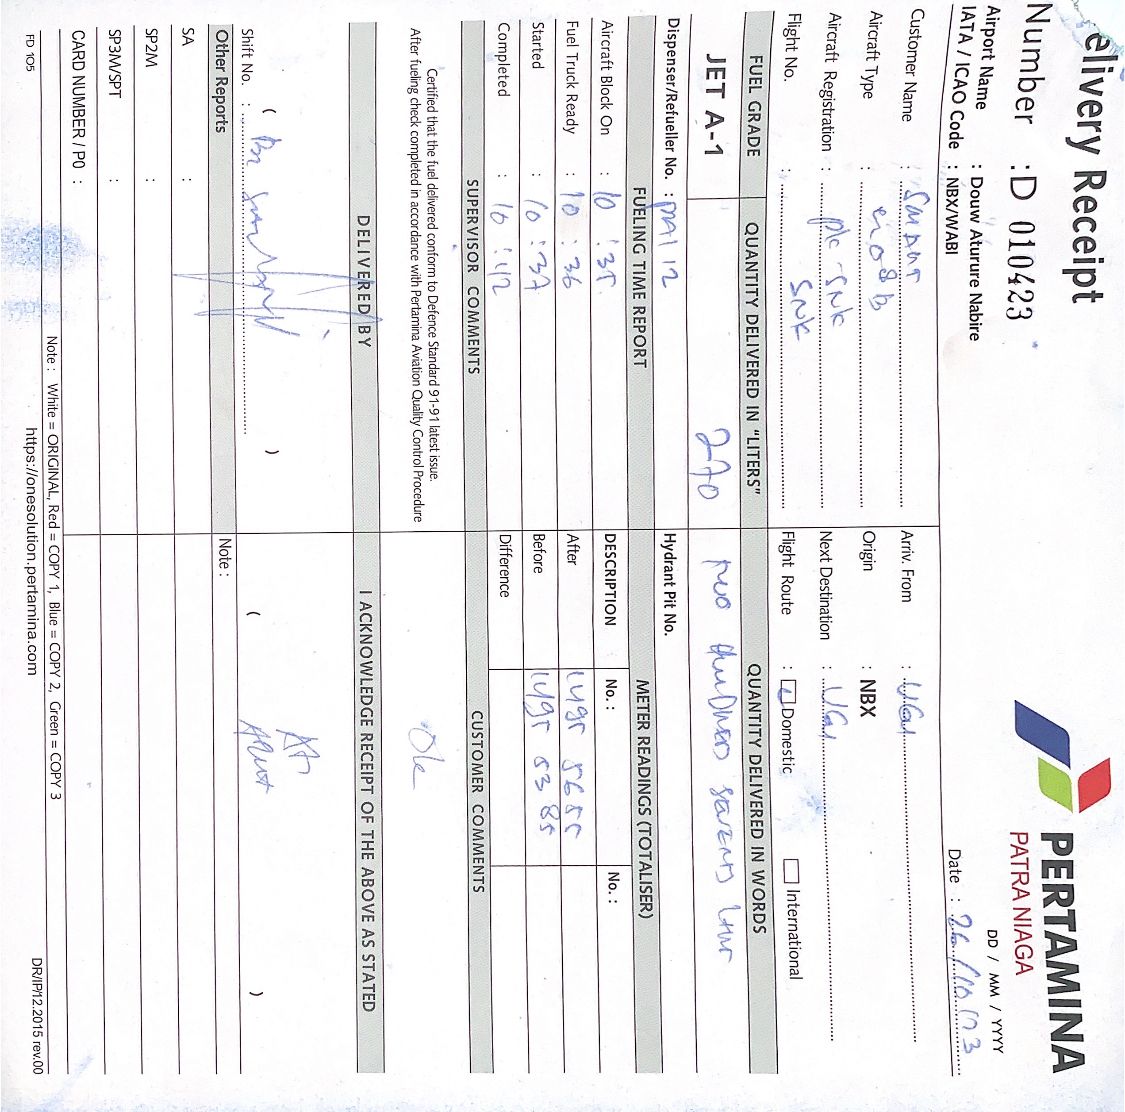 elivery Receipt
PERTAMINA
PATRA NIAGA
Number : D 010423
DD / MM / YYYY
Airport Name : Douw Aturure Nabire
IATA / ICAO Code : NBX/WABI
Date : 26/10/23
Customer Name : SMART
Arriv. From : UGU
Aircraft Type : C208B
Origin : NBX
Aircraft Registration : PK-SNK
Next Destination : UGU
Flight No. : SNK
Flight Route : Domestic International
FUEL GRADE QUANTITY DELIVERED IN "LITERS" QUANTITY DELIVERED IN WORDS
JET A-1 270 two hundred seventy
Dispenser/Refueller No. : 112
Hydrant Pit No.
FUELING TIME REPORT METER READINGS (TOTALISER)
Aircraft Block On : 10:35
DESCRIPTION No. : No. :
Fuel Truck Ready : 10:36
After 5655
Started : 10:37
Before 5385
Completed : 10:42
Difference
SUPERVISOR COMMENTS CUSTOMER COMMENTS
Certified that the fuel delivered conform to Defence Standard 91-91 latest issue.
After fueling check completed in accordance with Pertamina Aviation Quality Control Procedure
Ok
DELIVERED BY I ACKNOWLEDGE RECEIPT OF THE ABOVE AS STATED
( ) ( )
Shift No. :
Other Reports Note :
SA :
SP2M :
SP3M/SPT :
CARD NUMBER / PO :
Note : White = ORIGINAL, Red = COPY 1, Blue = COPY 2, Green = COPY 3
FD 105 https://onesolution.pertamina.com DR/IP/12.2015 rev.00